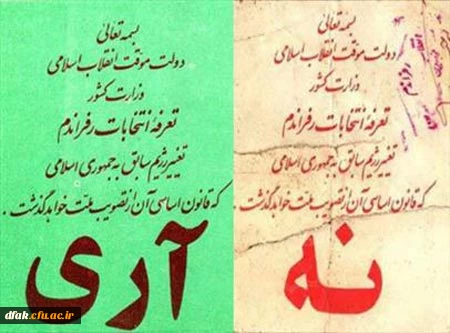 بسمه تعالی
دولت موقت انقلاب اسلامی
وزارت کشور
تعرفه انتخابات رفراندم
تغییر رژیم سابق به جمهوری اسلامی
که قانون اساسی آن از تصویب ملت خواهد گذشت .
نه
بسمه تعالی
دولت موقت انقلاب اسلامی
وزارت کشور
تعرفه انتخابات رفراندم
تغییر رژیم سابق به جمهوری اسلامی
که قانون اساسی آن از تصویب ملت خواهد گذشت .
آری
dfak.cfu.ac.ir